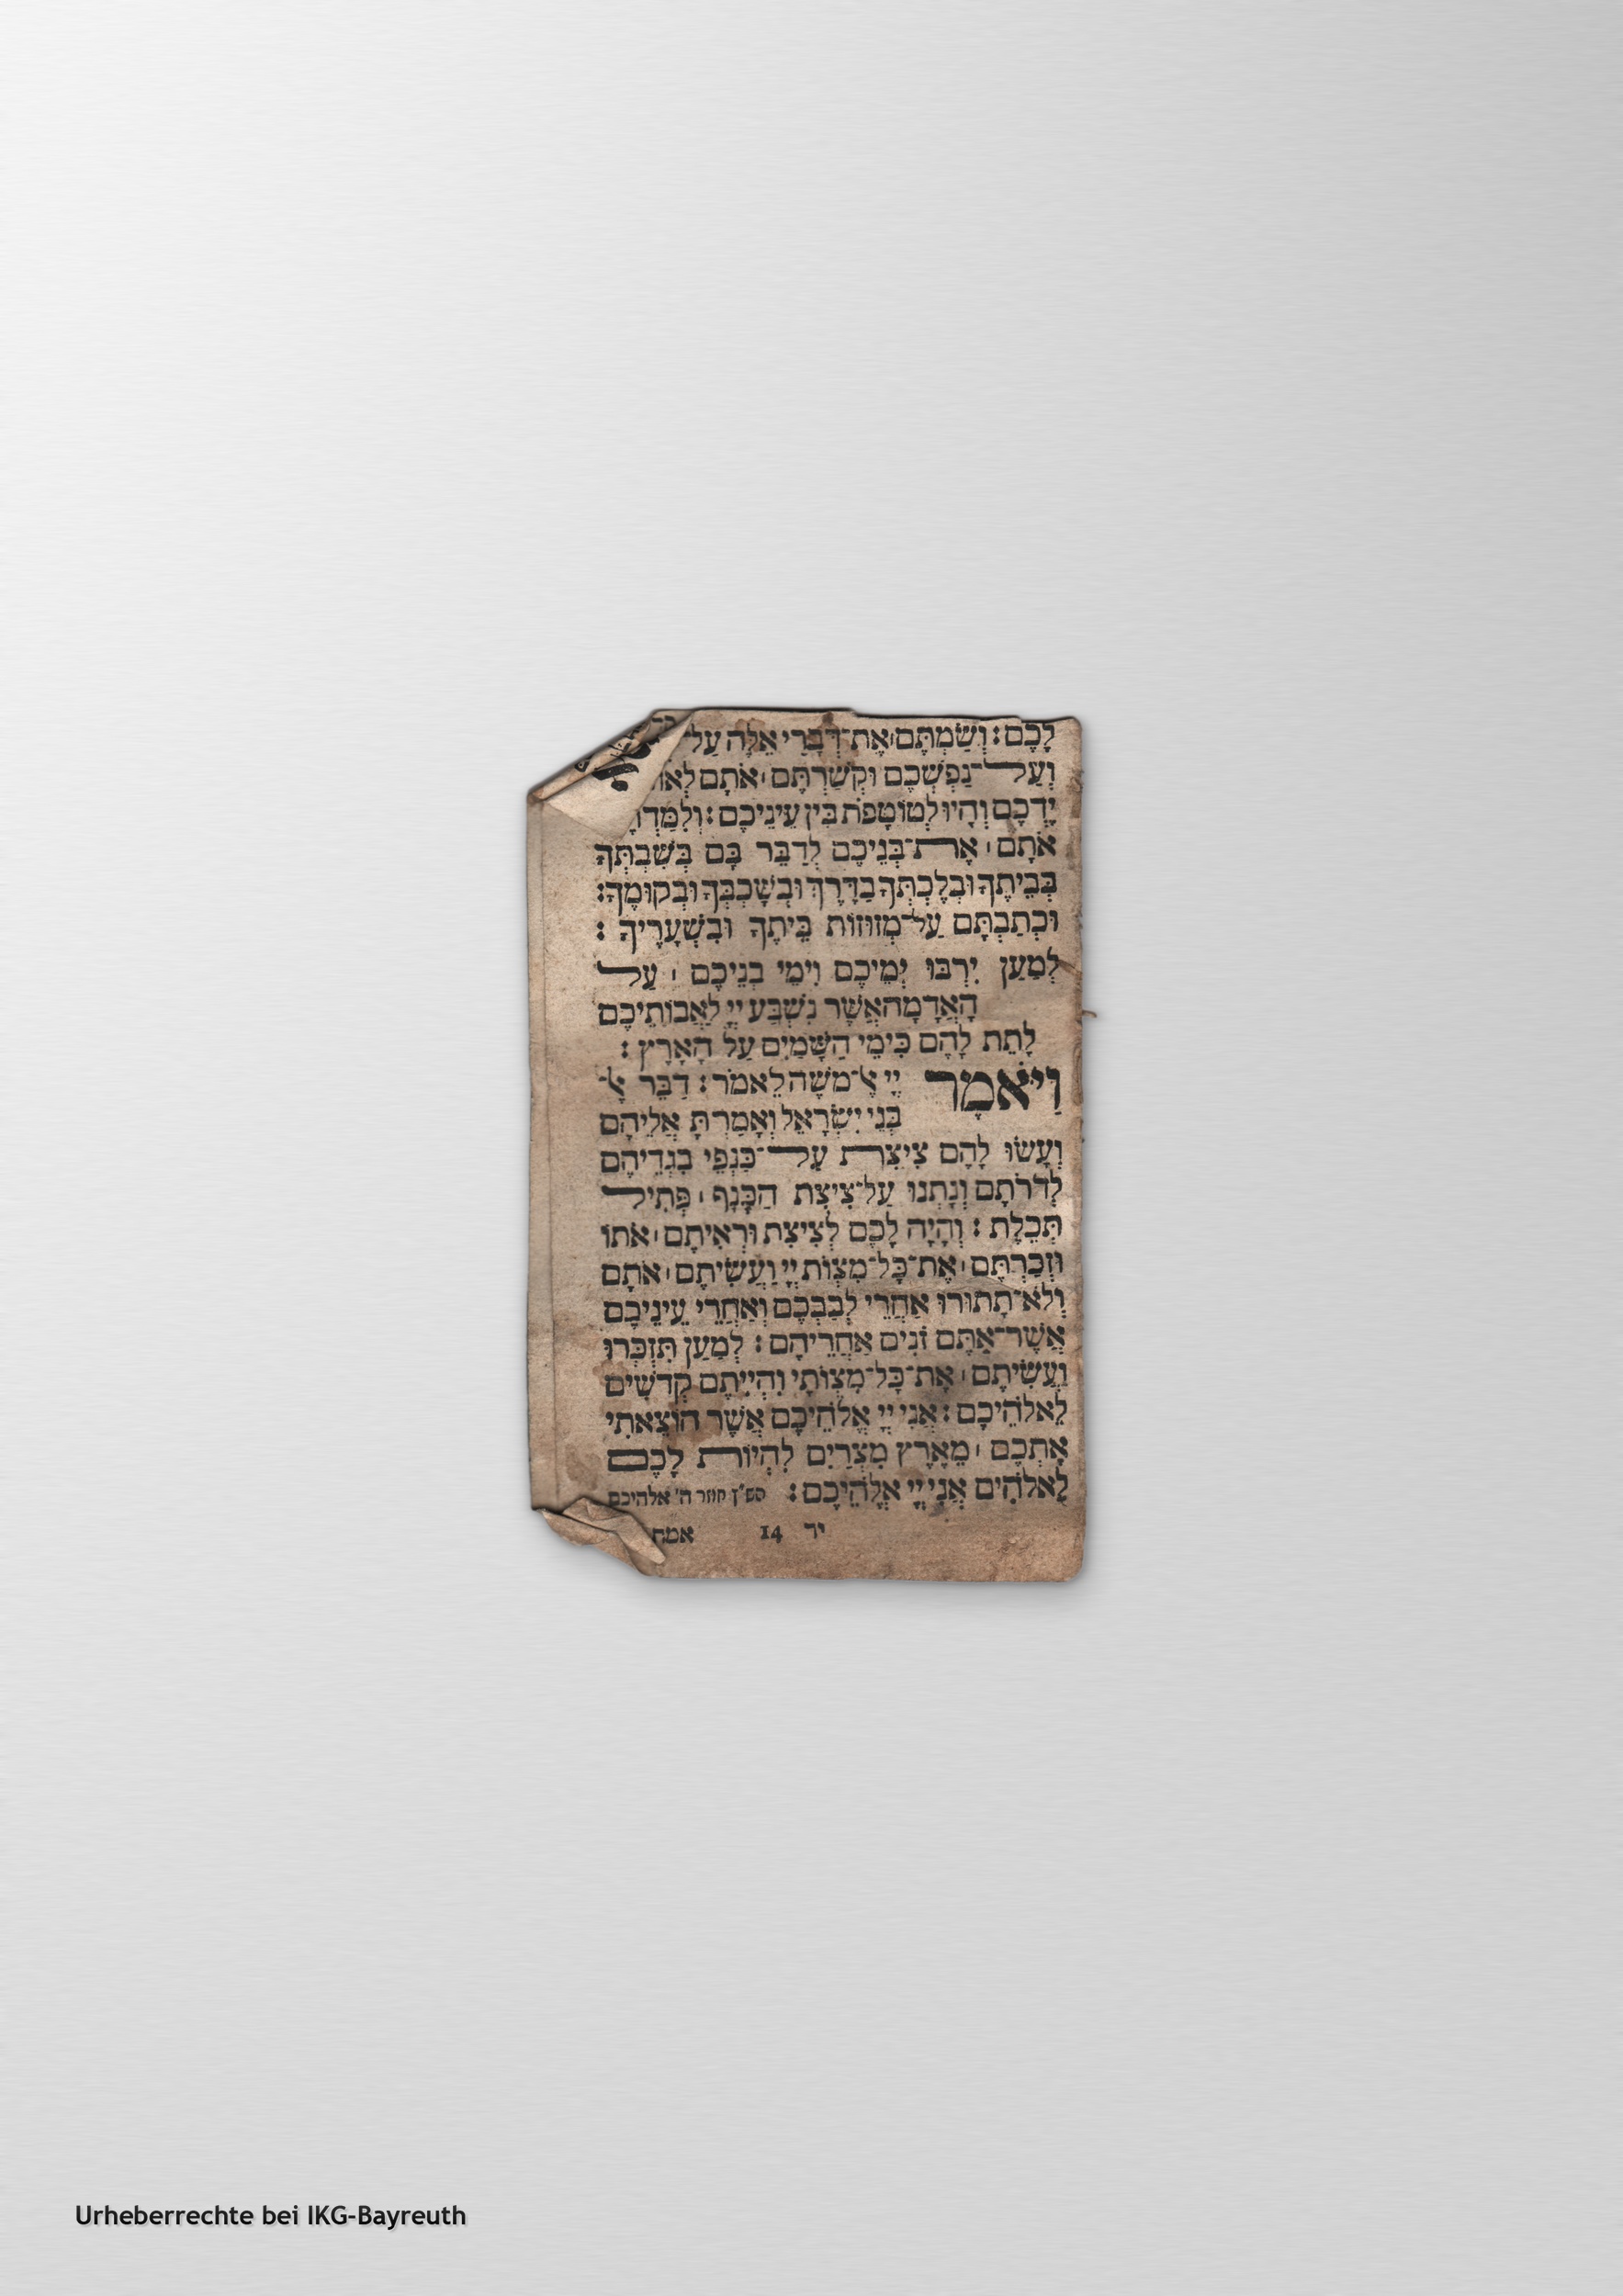 לָכֶם: וְשַׂמְתֶּם׀אֶת־דְּבָרַי אֵלֶּה עַל־
וְעַל־נַפְשְׁכֶם וּקְשַׁרְתֶּם׀אֹתָם לְאוֹ
יֶדְכֶם וְהָיוּ לְטוֹטָפֹת בֵּין עֵינֵיכֶם: וְלִמַּדְתֶּ
אֹתָם׀אֶת־בְּנֵיכֶם לְדַבֵּר בָּם בְּשִׁבְתְּךָ
בְּבֵיתֶךָ וּבְלֶכְתְּךָ בַדֶּרֶךְ וּבְשָׁכְבְּךָ וּבְקוּמֶךָ:
וּכְתַבְתָּם עַל־מְזוּזוֹת בֵּיתֶךָ וּבִשְׁעָרֶיךָ:
לְמַעַן יִרְבּוּ יְמֵיכֶם וִימֵי בְנֵיכֶם׀עַל
הָאֲדָמָה אֲשֶׁר נִשְׁבַּע יְיָ לַאֲבוֹתֵיכֶם
לָתֵת לָהֶם כִּימֵי הַשָּׁמַיִם עַל הָאָרֶץ:
וַיֹּאמֶר יְיָ אֶל־מֹשֶׁה לֵּאמֹר: דַּבֵּר אֶל־
בְּנֵי יִשְׂרָאֵל וְאָמַרְתָּ אֲלֵיהֶם
וְעָשׂוּ לָהֶם צִיצִת עַל־כַּנְפֵי בִגְדֵיהֶם
לְדֹרֹתָם וְנָתְנוּ עַל־צִיצִת הַכָּנָף׀פְּתִיל
תְּכֵלֶת: וְהָיָה לָכֶם לְצִיצִת וּרְאִיתֶם׀אֹתוֹ
וּזְכַרְתֶּם׀אֶת־כָּל־מִצְוֹת יְיָ וַעֲשִׂיתֶם׀אֹתָם
וְלֹא־תָתוּרוּ אַחֲרֵי לְבַבְכֶם וְאַחֲרֵי עֵינֵיכֶם
אֲשֶׁר־אַתֶּם זֹנִים אַחֲרֵיהֶם: לְמַעַן תִּזְכְּרוּ
וַעֲשִׂיתֶם׀אֶת־כָּל־מִצְוֹתָי וִהְיִיתֶם קְדֹשִׁים
לֵאלֹהֵיכֶם: אֲנִי יְיָ אֱלֹהֵיכֶם אֲשֶׁר הוֹצֵאתִי
אֶתְכֶם׀מֵאֶרֶץ מִצְרַיִם לִהְיוֹת לָכֶם
לֵאלֹהִים אֲנִי יְיָ אֱלֹהֵיכֶם: הש״ץ חוזר ה' אלהיכם
יד 14 אמת
Urheberrechte bei IKG-Bayreuth